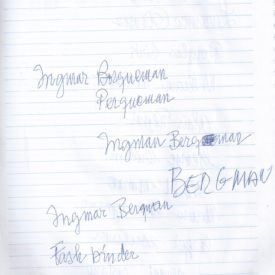 Ingmar Bosquoman
Perquoman
Ingman Berg man
BERGMAN
Ingmar Bergman
Fassbinder